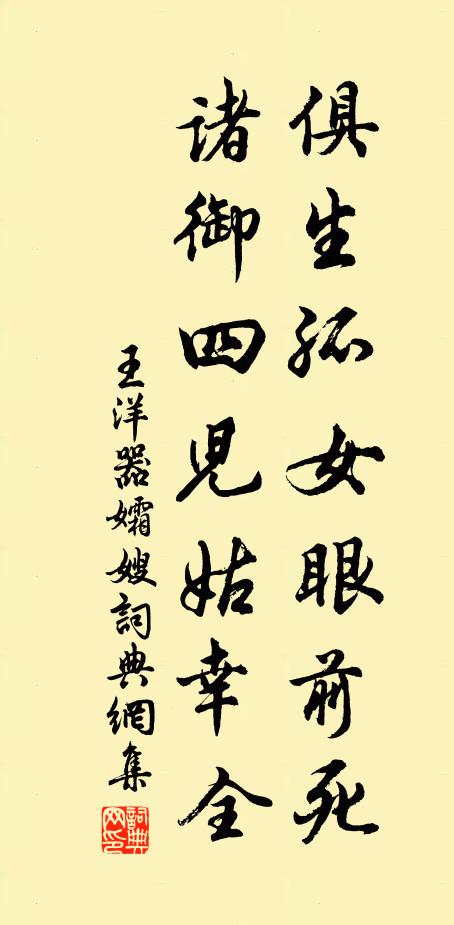 俱生孤女眼前死
諸御四兒姑幸全
王洋器孀嫂詞典網集
詞典网印